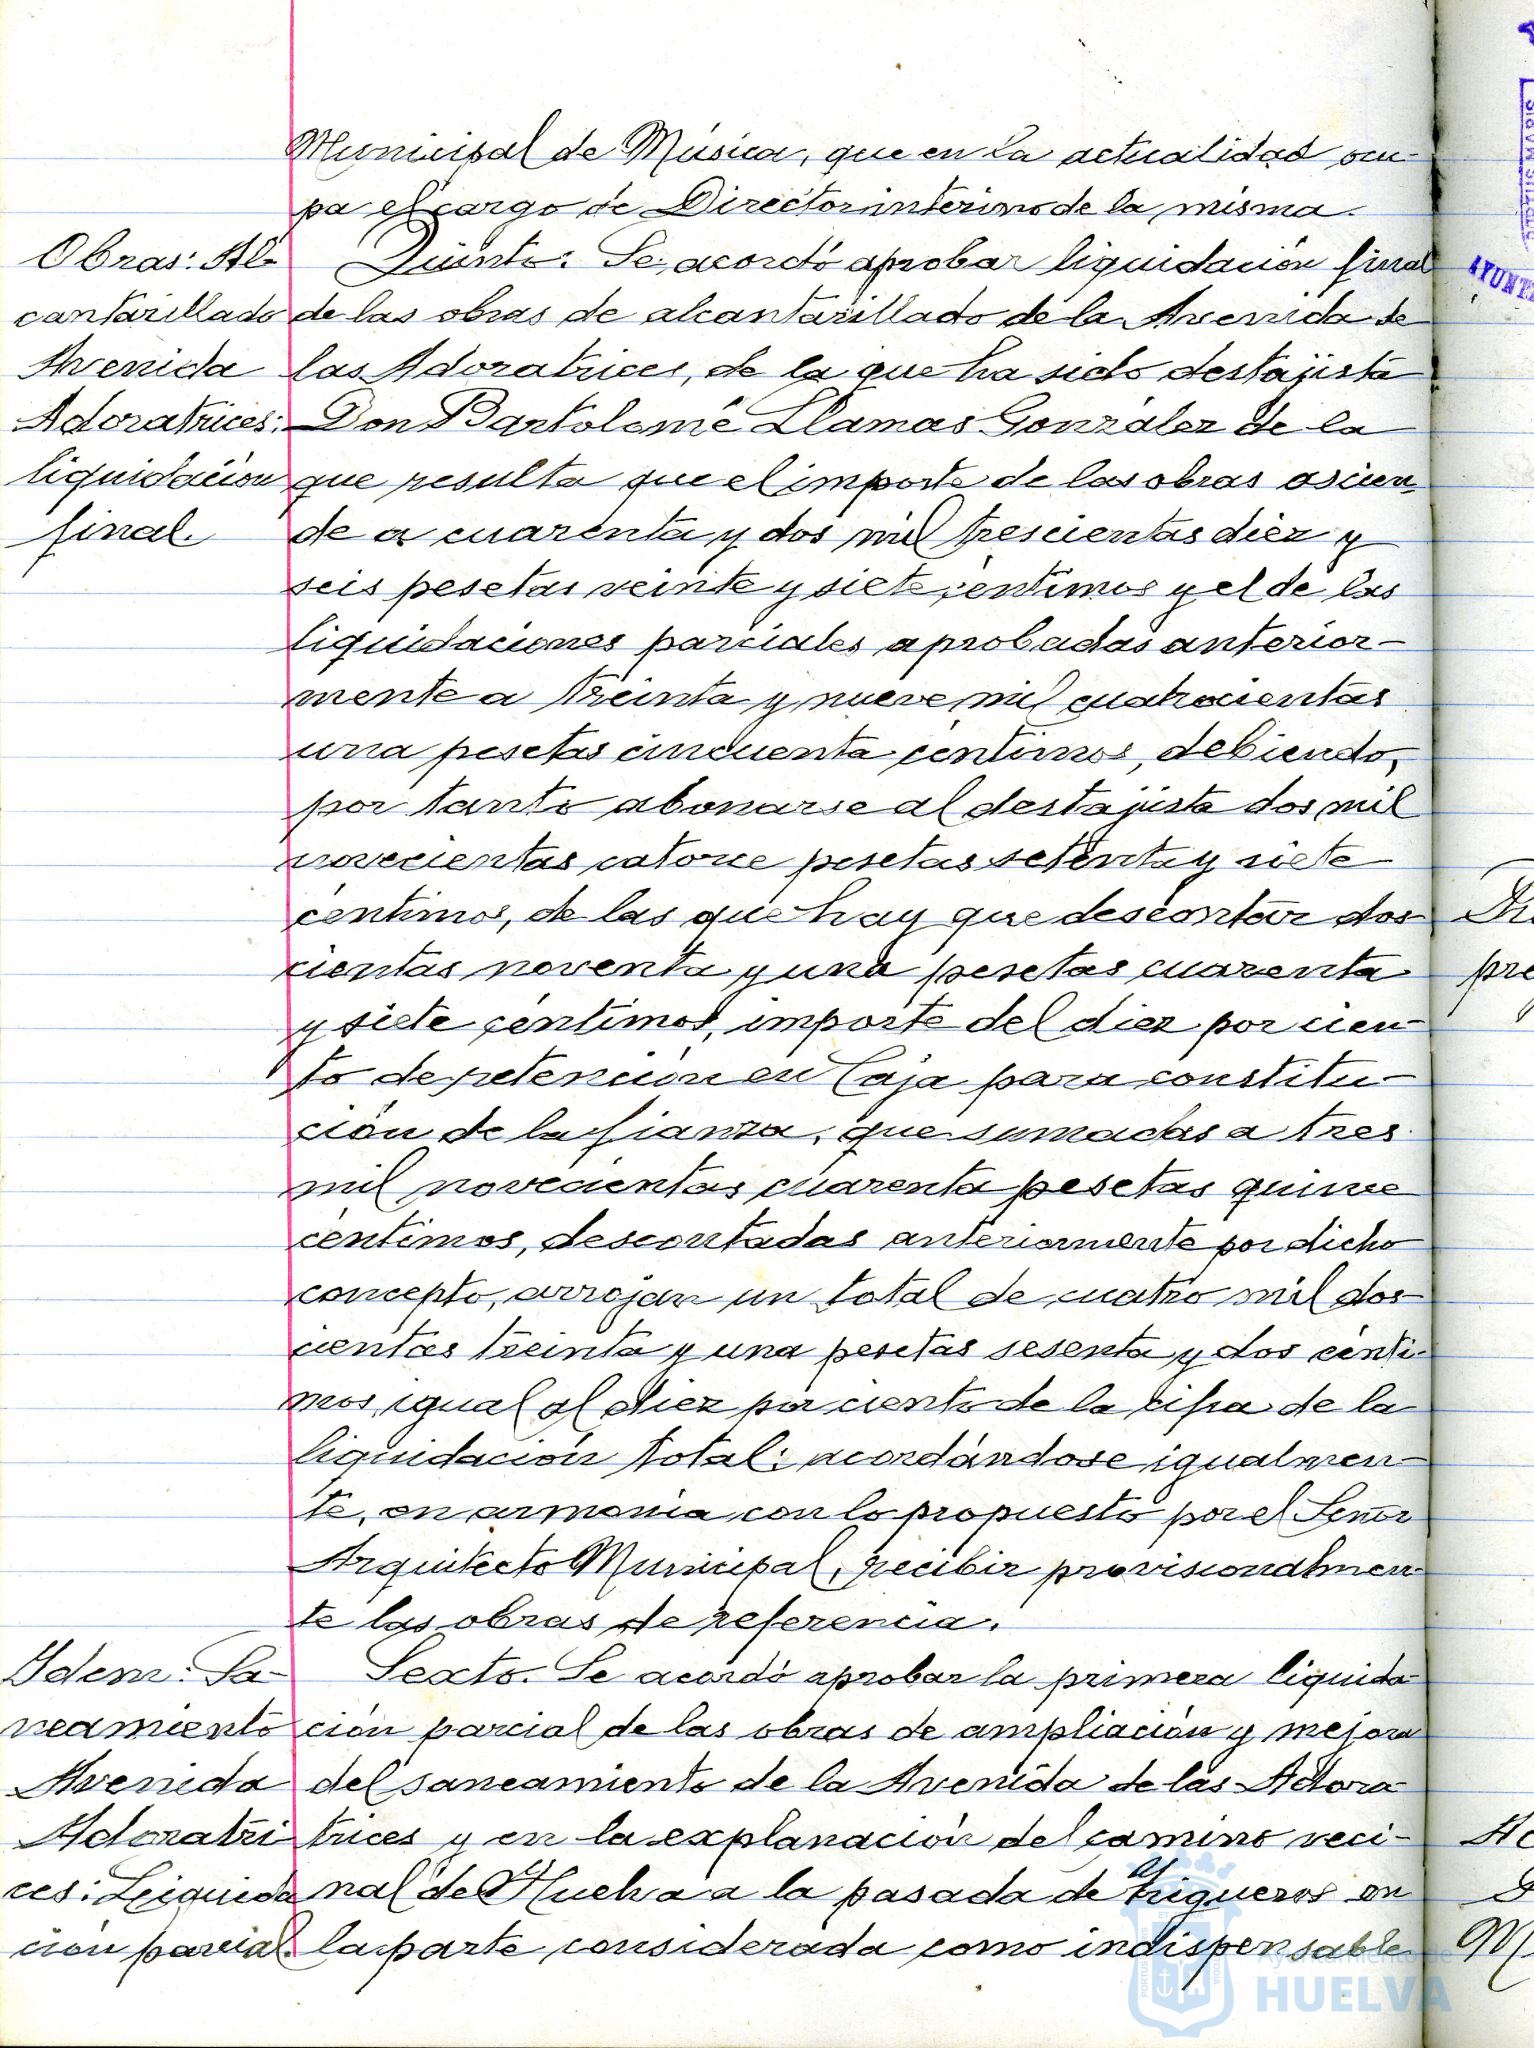 Municipal de Música, que en la actualidad ocu-
pa el cargo de Director interino de la misma.
Obras: Al-
cantarillado
Avenida
Adoratrices:
liquidación
final.
Quinto. Se acordó aprobar liquidación final
de las obras de alcantarillado de la Avenida de
las Adoratrices, de la que ha sido destajista
Don Bartolomé Llamas González de la
que resulta que el importe de las obras ascien-
de a cuarenta y dos mil trescientas diez y
seis pesetas veinte y siete céntimos y el de las
liquidaciones parciales aprobadas anterior-
mente a treinta y nueve mil cuatrocientas
una pesetas cincuenta céntimos, debiendo,
por tanto abonarse al destajista dos mil
novecientas catorce pesetas setenta y siete
céntimos, de las que hay que descontar dos-
cientas noventa y una pesetas cuarenta
y siete céntimos, importe del diez por cien-
to de retención en Caja para constitu-
ción de la fianza, que sumadas a tres
mil novecientas cuarenta pesetas quince
céntimos, descontadas anteriormente por dicho
concepto, arrojan un total de cuatro mil dos-
cientas treinta y una pesetas sesenta y dos cénti-
mos, igual al diez por ciento de la cifra de la
liquidación total; acordándose igualmen-
te, en armonía con lo propuesto por el Señor
Arquitecto Municipal, recibir provisionalmen-
te las obras de referencia.
Ydem: Sa-
neamiento
Avenida
Adoratri
ces: Liquida
ción parcial.
Sexto. Se acordó aprobar la primera liquida-
ción parcial de las obras de ampliación y mejora
del saneamiento de la Avenida de las Adora-
trices y en la explanación del camino veci-
nal de Huelva a la pasada de Trigueros en
la parte considerada como indispensable
Ayuntamiento de
HUELVA